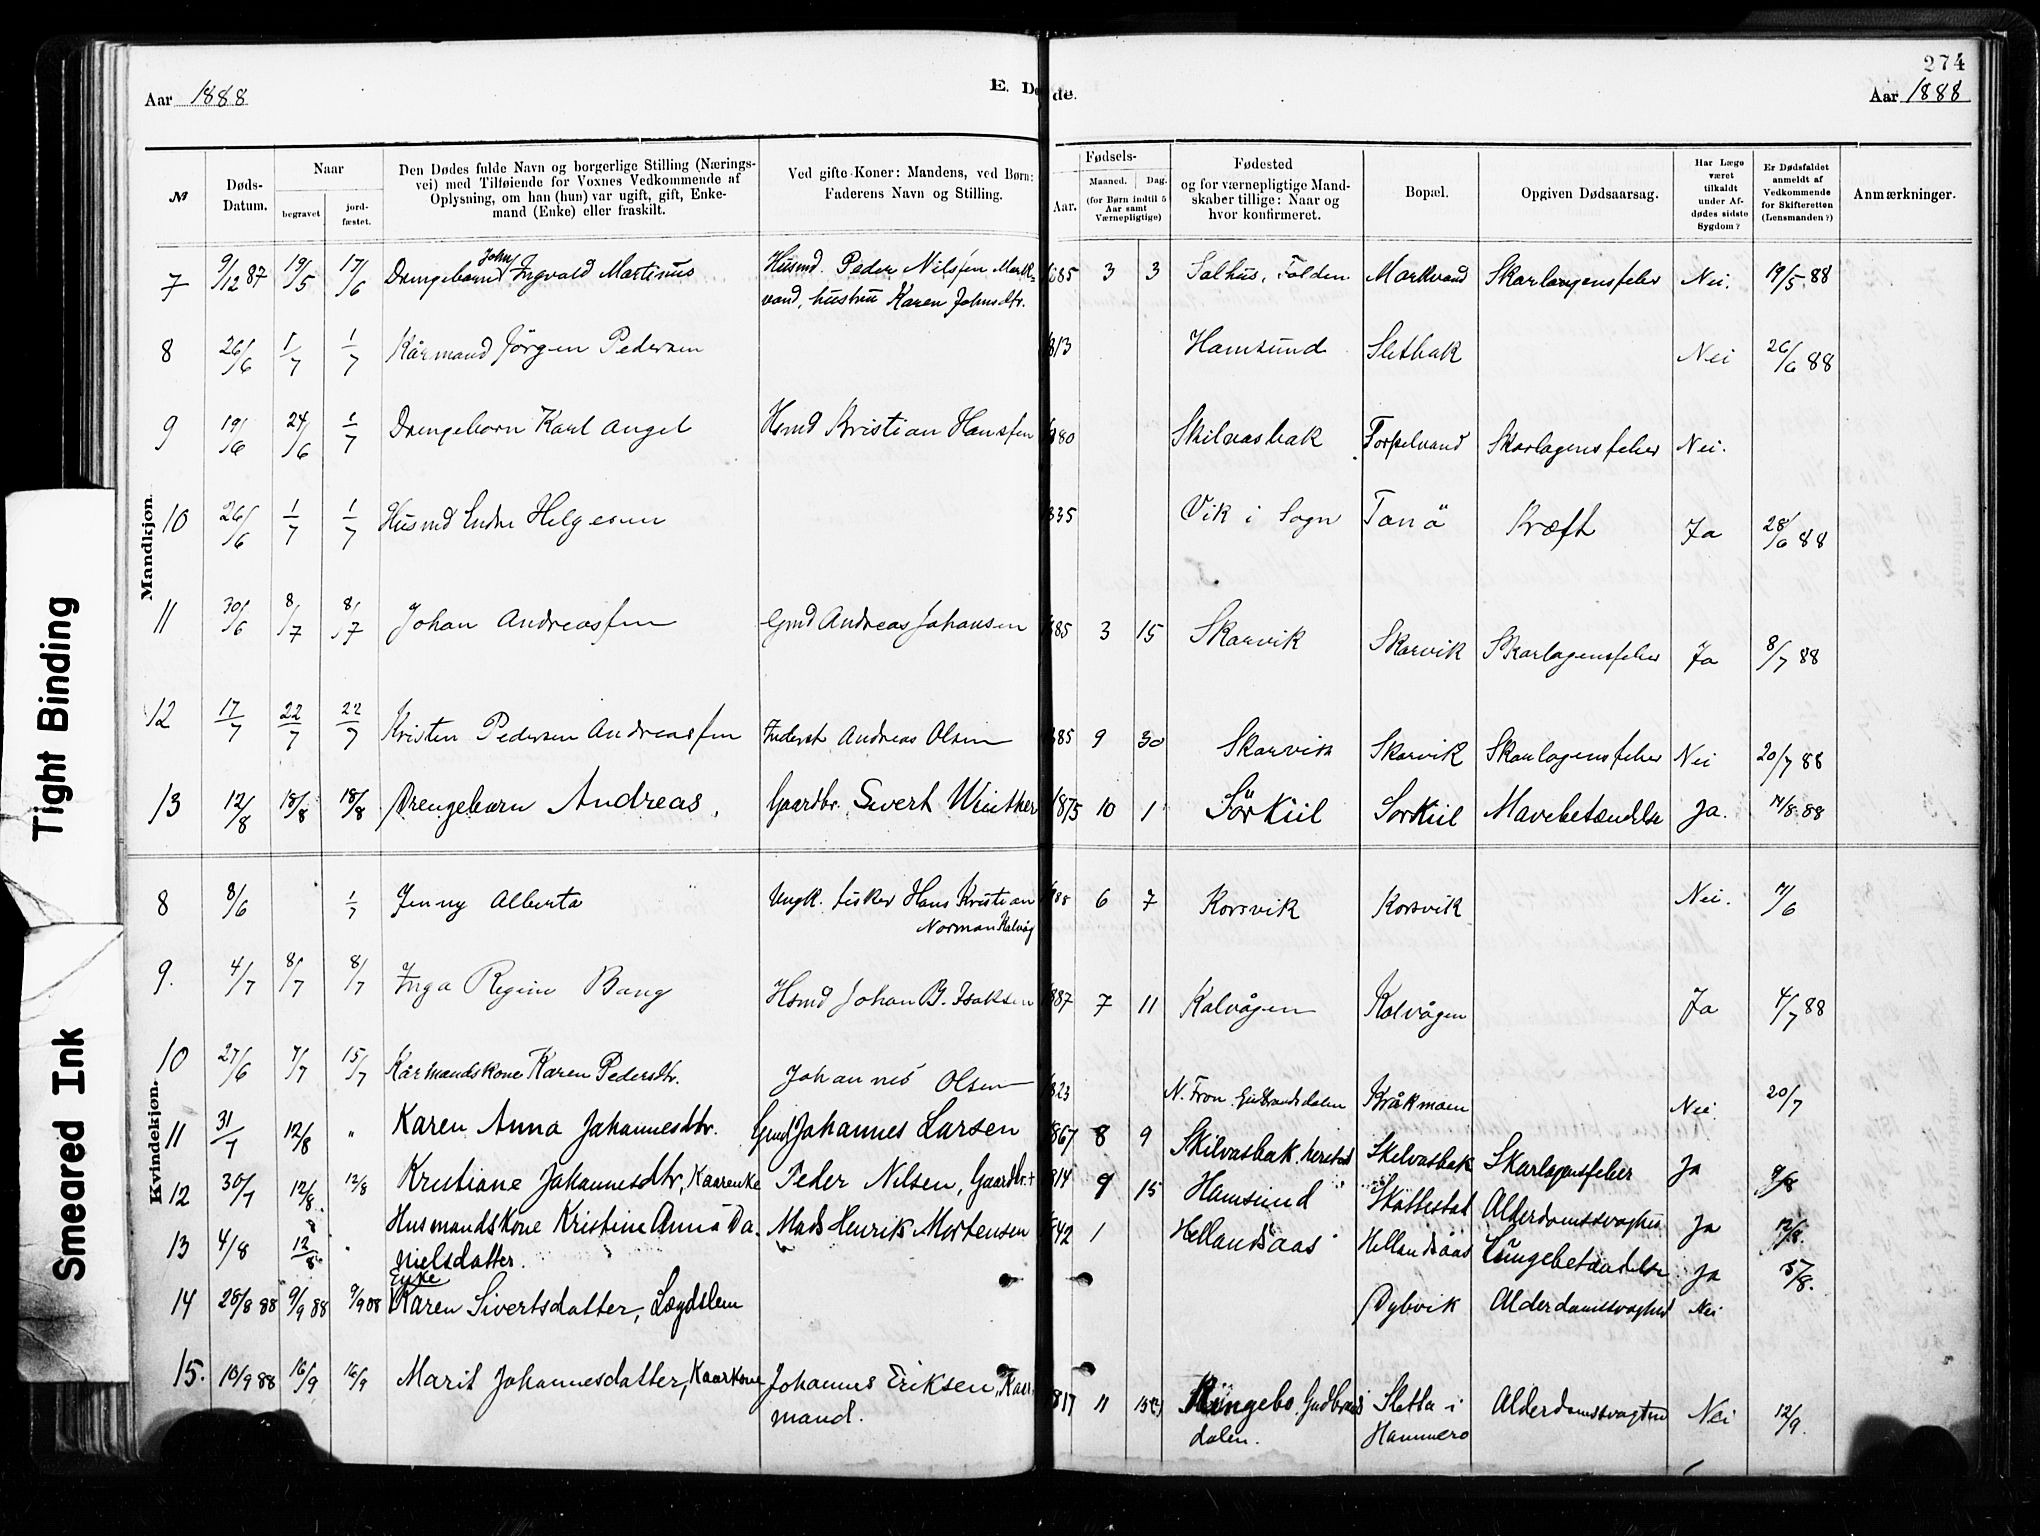 274
Aar 1888
E. Døde.
Aar 1888
№
Døds-Datum.
Naar
begravet
jord-fæstet.
Den Dødes fulde Navn og borgerlige Stilling (Nærings-
vei) med Tilføiende for Voxnes Vedkommende af
Oplysning, om han (hun) var ugift, gift, Enke-
mand (Enke) eller fraskilt.
Ved gifte Koner: Mandens, ved Børn:
Faderens Navn og Stilling.
Fødsels-
Aar.
Maaned.
Dag.
(for Børn indtil 5
Aar samt
Værnepligtige)
Fødested
og for værnepligtige Mand-
skaber tillige: Naar og
hvor konfirmeret.
Bopæl.
Opgiven Dødsaarsag.
Har Læge
været
tilkaldt
under Af-
dødes sidste
Sygdom?
Er Dødsfaldet
anmeldt af
Vedkommende
for Skifteretten
(Lensmanden?)
Anmærkninger.
Mandkjøn.
John
7 9/12 87 19/5 17/6 Drengebarn Ingvald Martinus Husmd. Peder Nilssen Mark- 1885 3 3 Salhus, Folden Markvand Skarlagensfeber Nei. 19/5 88
vand, hustru Karen Johnsdtr.
8 26/6 1/7 1/7 Kårmand Jörgen Pedersen 1813 Hamsund Sletbak Nei 26/6 88
9 19/6 24/6 1/7 Drengebarn Karl Angel Hsmd Kristian Hanssen 1880 Skilvasbak Torpelvand Skarlagensfeber Nei.
10 26/6 1/7 1/7 Husmd Endre Helgesen 1835 Vik i Sogn Tanö Kræft Ja 28/6 88
11 30/6 8/7 8/7 Johan Andreassen Gmd Andreas Johansen 1885 3 15 Skarvik Skarvik Skarlagensfeber Ja 8/7 88
12 17/7 22/7 22/7 Kristen Pedersen Andreassen Inderst Andreas Olsen 1885 9 30 Skarvik Skarvik Skarlagensfeber Nei 20/7 88
13 12/8 18/8 18/8 Drengebarn Andreas, Gaardbr. Sivert Winther 1875 10 1 Sörkiil Sorkiil Mavebetændelse Ja. 14/8 88
Kvindekjøn.
8 8/6 1/7 Jenny Alberta Ungk. fisker Hans Kristian 1888 6 7 Korsvik Korsvik Nei.
Norman Kalvåg
9. 4/7 8/7 8/7 Inga Regine Bang Hsmd Johan B. Isaksen 1887 7 11 Kalvågen Kalvågen Ja 4/7 88
10 27/6 7/7 15/7 Kårmandskone Karen Pedersdtr. Johannes Olsen 1823 N. Fron Gudbrandsdalen Kråkmoen Nei 20/7
11 31/7 12/8 " Karen Anna Johannesdtr. Gmd Johannes Larsen 1867 8 9 Skilvasbak, herstad Skelvasbak Skarlagensfeber Ja 9/8
12 30/7 12/8 12/8 Kristiane Johannesdtr, Kaarenke Peder Nilsen, Gaardbr. + 1814 9 15 Hamsund Skottestad Alderdomssvaghed Ja 12/8
13 4/8 12/8 " Husmandskone Kristine Anna Da- Mads Henrik Mortensen 1842 1 Hellandsaas Hellandsaas Lungebetændelse Ja
nielsdatter.
Enke
14 28/8 88 9/9 88 9/9 88 Karen Sivertsdatter, Lægdslem Dybvik Alderdomssvaghed Nei
15. 10/9 88 16/9 16/9 Marit Johannesdatter, Kaarkone Johannes Eriksen, Kaar- 1817 11 15(?) Ringebo, Gudbrands- Sletta i Alderdomssvaghed Nei 12/9.
mand. dalen. Hammerø
Tight Binding
Smeared Ink